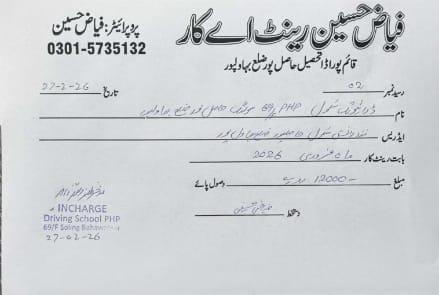 فیاض حسین رینٹ اے کار
پروپرائیٹر: فیاض حسین
0301-5735132
قائم پور اڈا تحصیل حاصل پور ضلع بہاولپور
رسید نمبر 02 تاریخ 27-2-26
نام ڈرائیونگ سکول PHP 69/F سولنگ حاصل پور ضلع بہاولپور
ایڈریس ڈرائیونگ سکول حاصلپور ضلع بہاولپور
بابت رینٹ کار ماہ فروری 2026
مبلغ 12000/- روپے وصول پائے
دستخط
INCHARGE
Driving School PHP
69/F Soling Bahawalpur
27-02-26